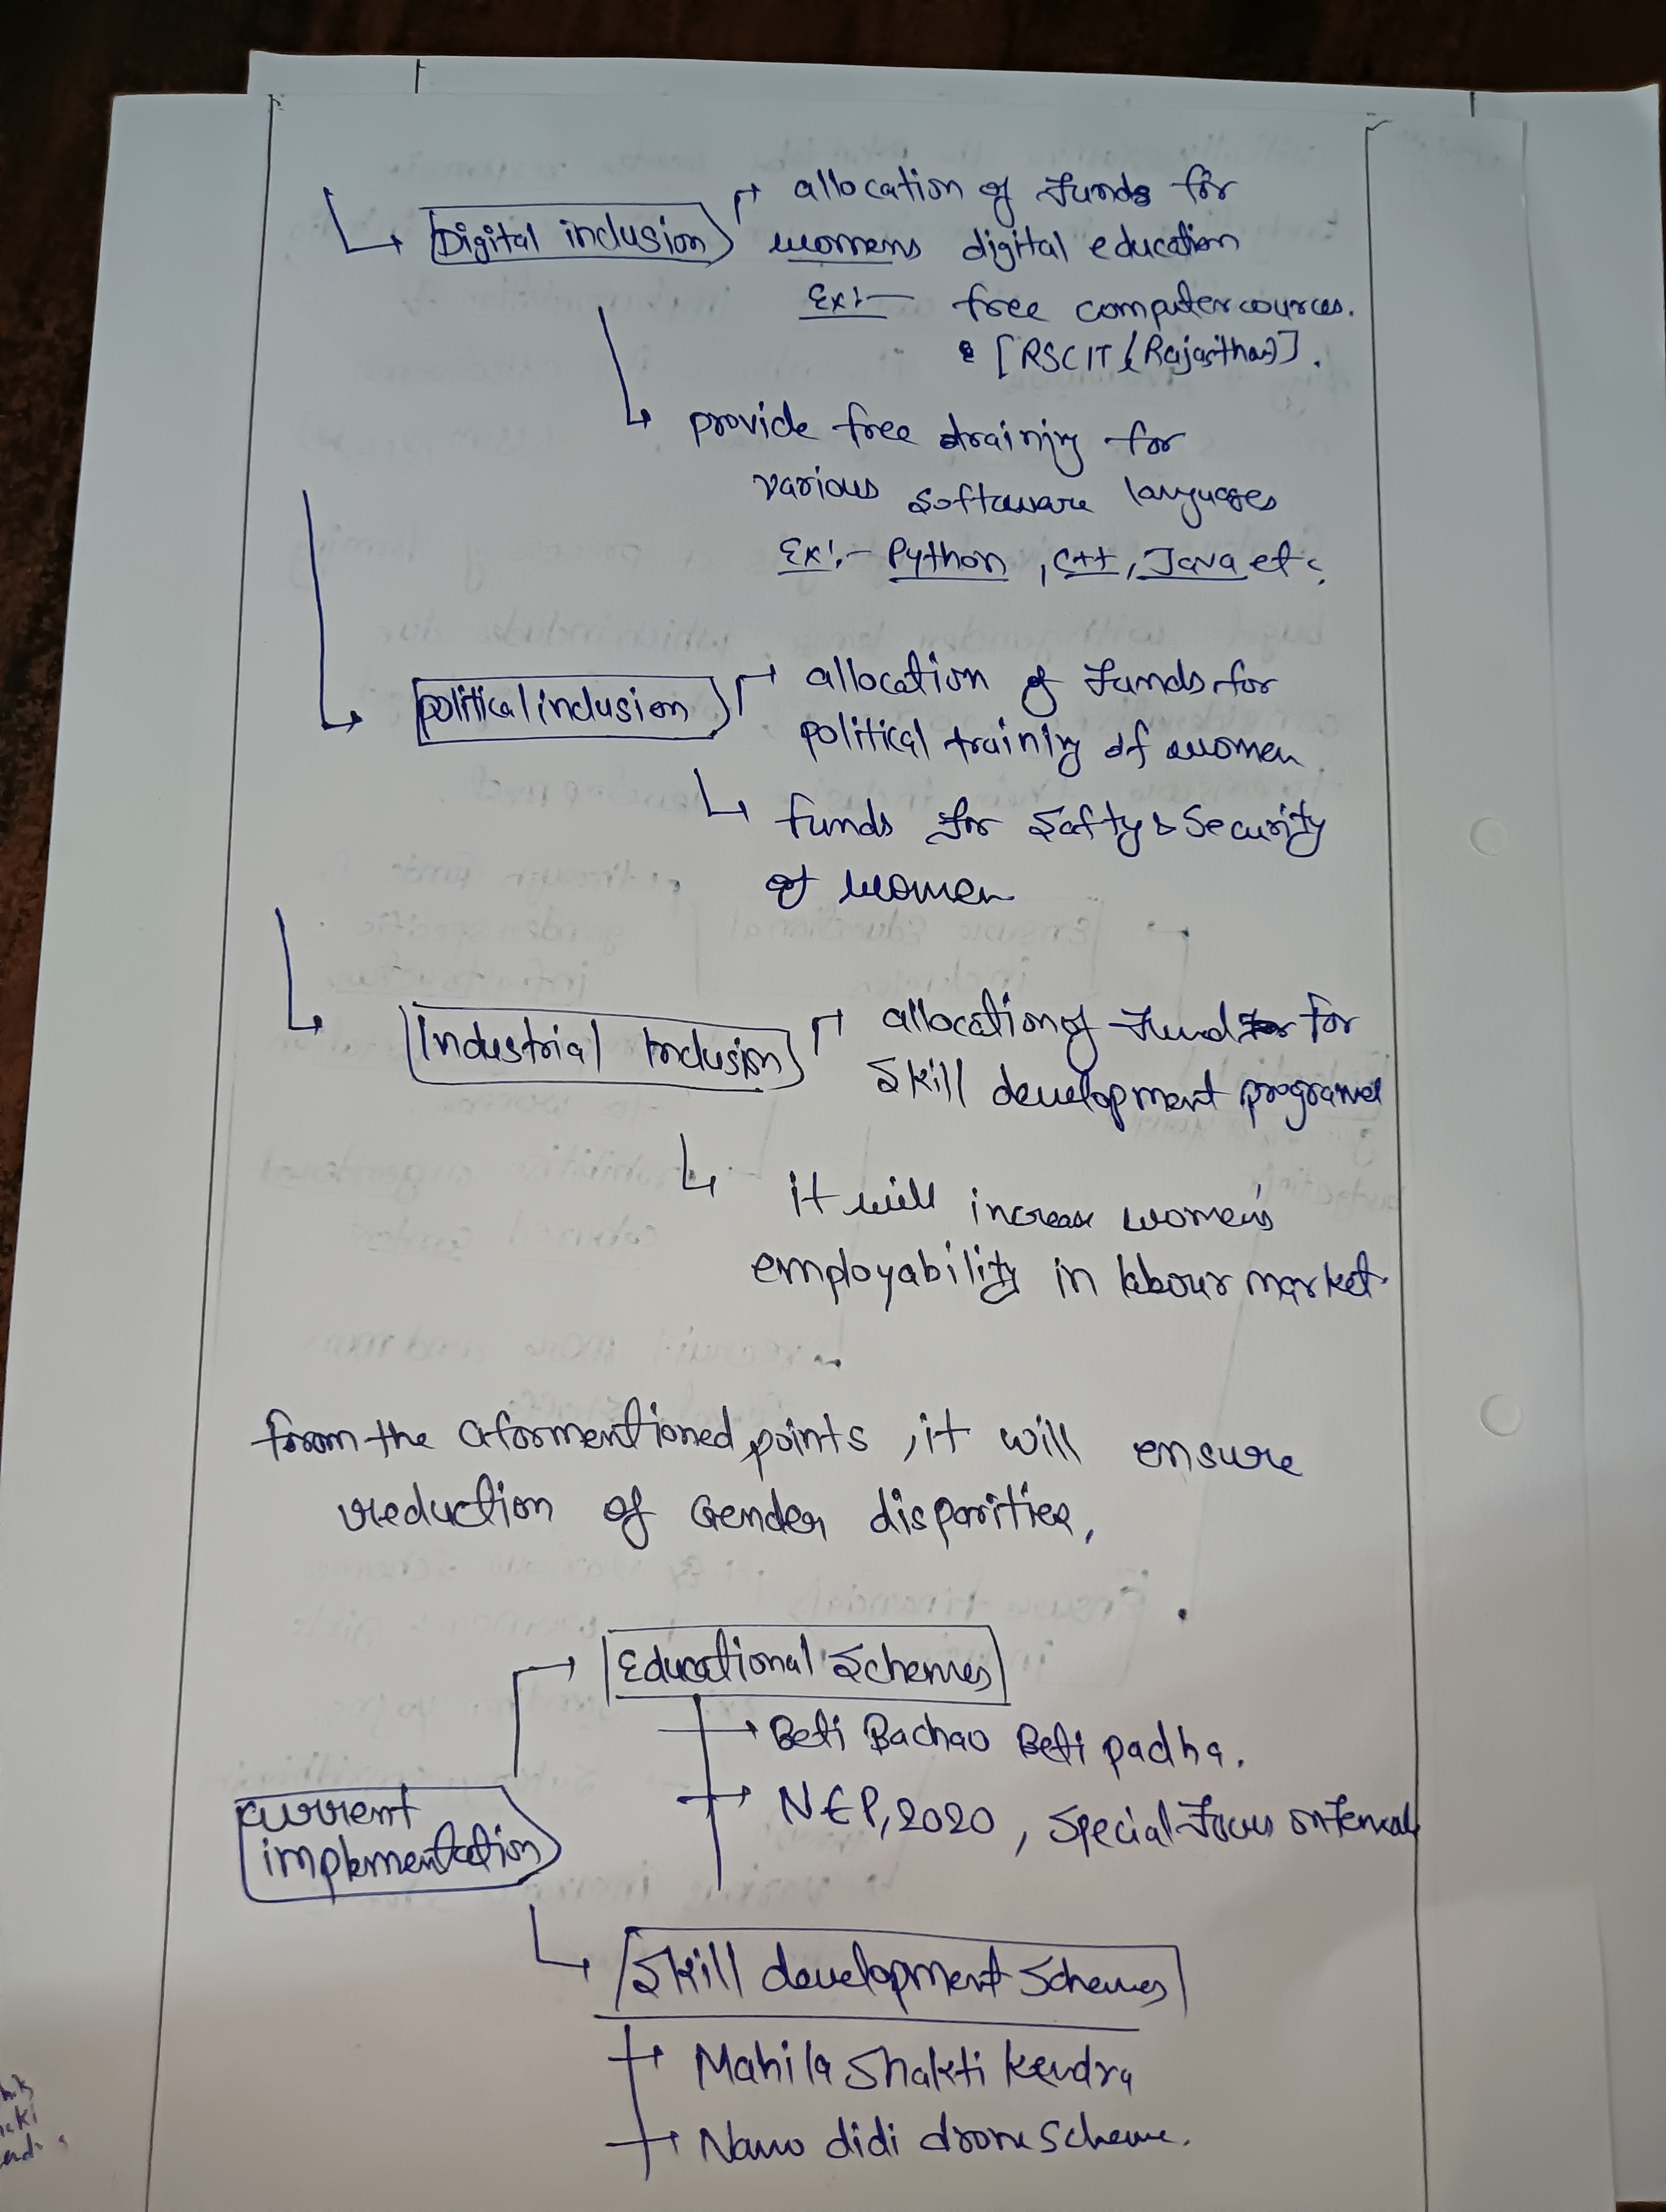 Digital inclusion
allocation of funds for
womens digital education
Ex:- free computer cources.
[RSCIT (Rajasthan)].
provide free training for
various software languages
Ex:- Python, C++, Java etc.
political inclusion
allocation of funds for
political training of women
funds for Safty & Security
of women
Industrial Inclusion
allocation of fund for
Skill development programes
it will increase women's
employability in labour market.
from the aformentioned points, it will ensure
reduction of Gender disparities,
Educational Schemes
Beti Bachao Beti padha.
NEP, 2020, Special focus on female
current
implementation
Skill development Schemes
Mahila Shakti Kendra
Namo didi drone Scheme.